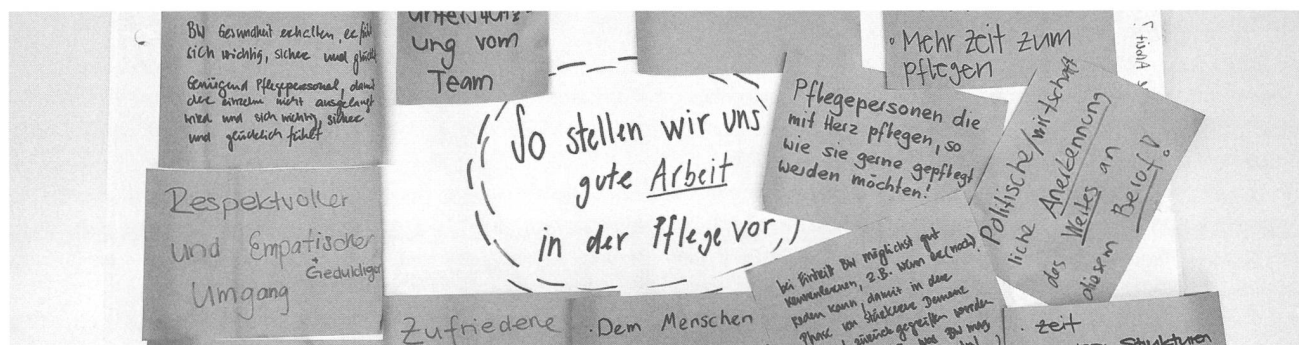 BW Gesundheit erhalten, er fühlt
sich wichtig, sicher und glückl
Genügend Pflegepersonal, damit
der einzelne nicht ausgelaugt
wird und sich wichtig, sicher
und glücklich fühlt
ung vom
Team
Respektvoller
und Empatischer
+ Geduldiger
Umgang
So stellen wir uns
gute Arbeit
in der Pflege vor
· Mehr zeit zum
pflegen
Pflegepersonen die
mit Herz pflegen, so
wie sie gerne gepflegt
werden möchten!
Politische/wirtschaft
liche Anerkennung
des Wertes an
diesem Beruf!
bei Eintritt BW möglichst gut
kennenlernen, z.B. wenn er (noch)
reden kann, damit in der
Phase von stärkerer Demenz
zurück gegriffen werden
was BW mag
Zufriedene
· Dem Menschen
· zeit
Strukturen